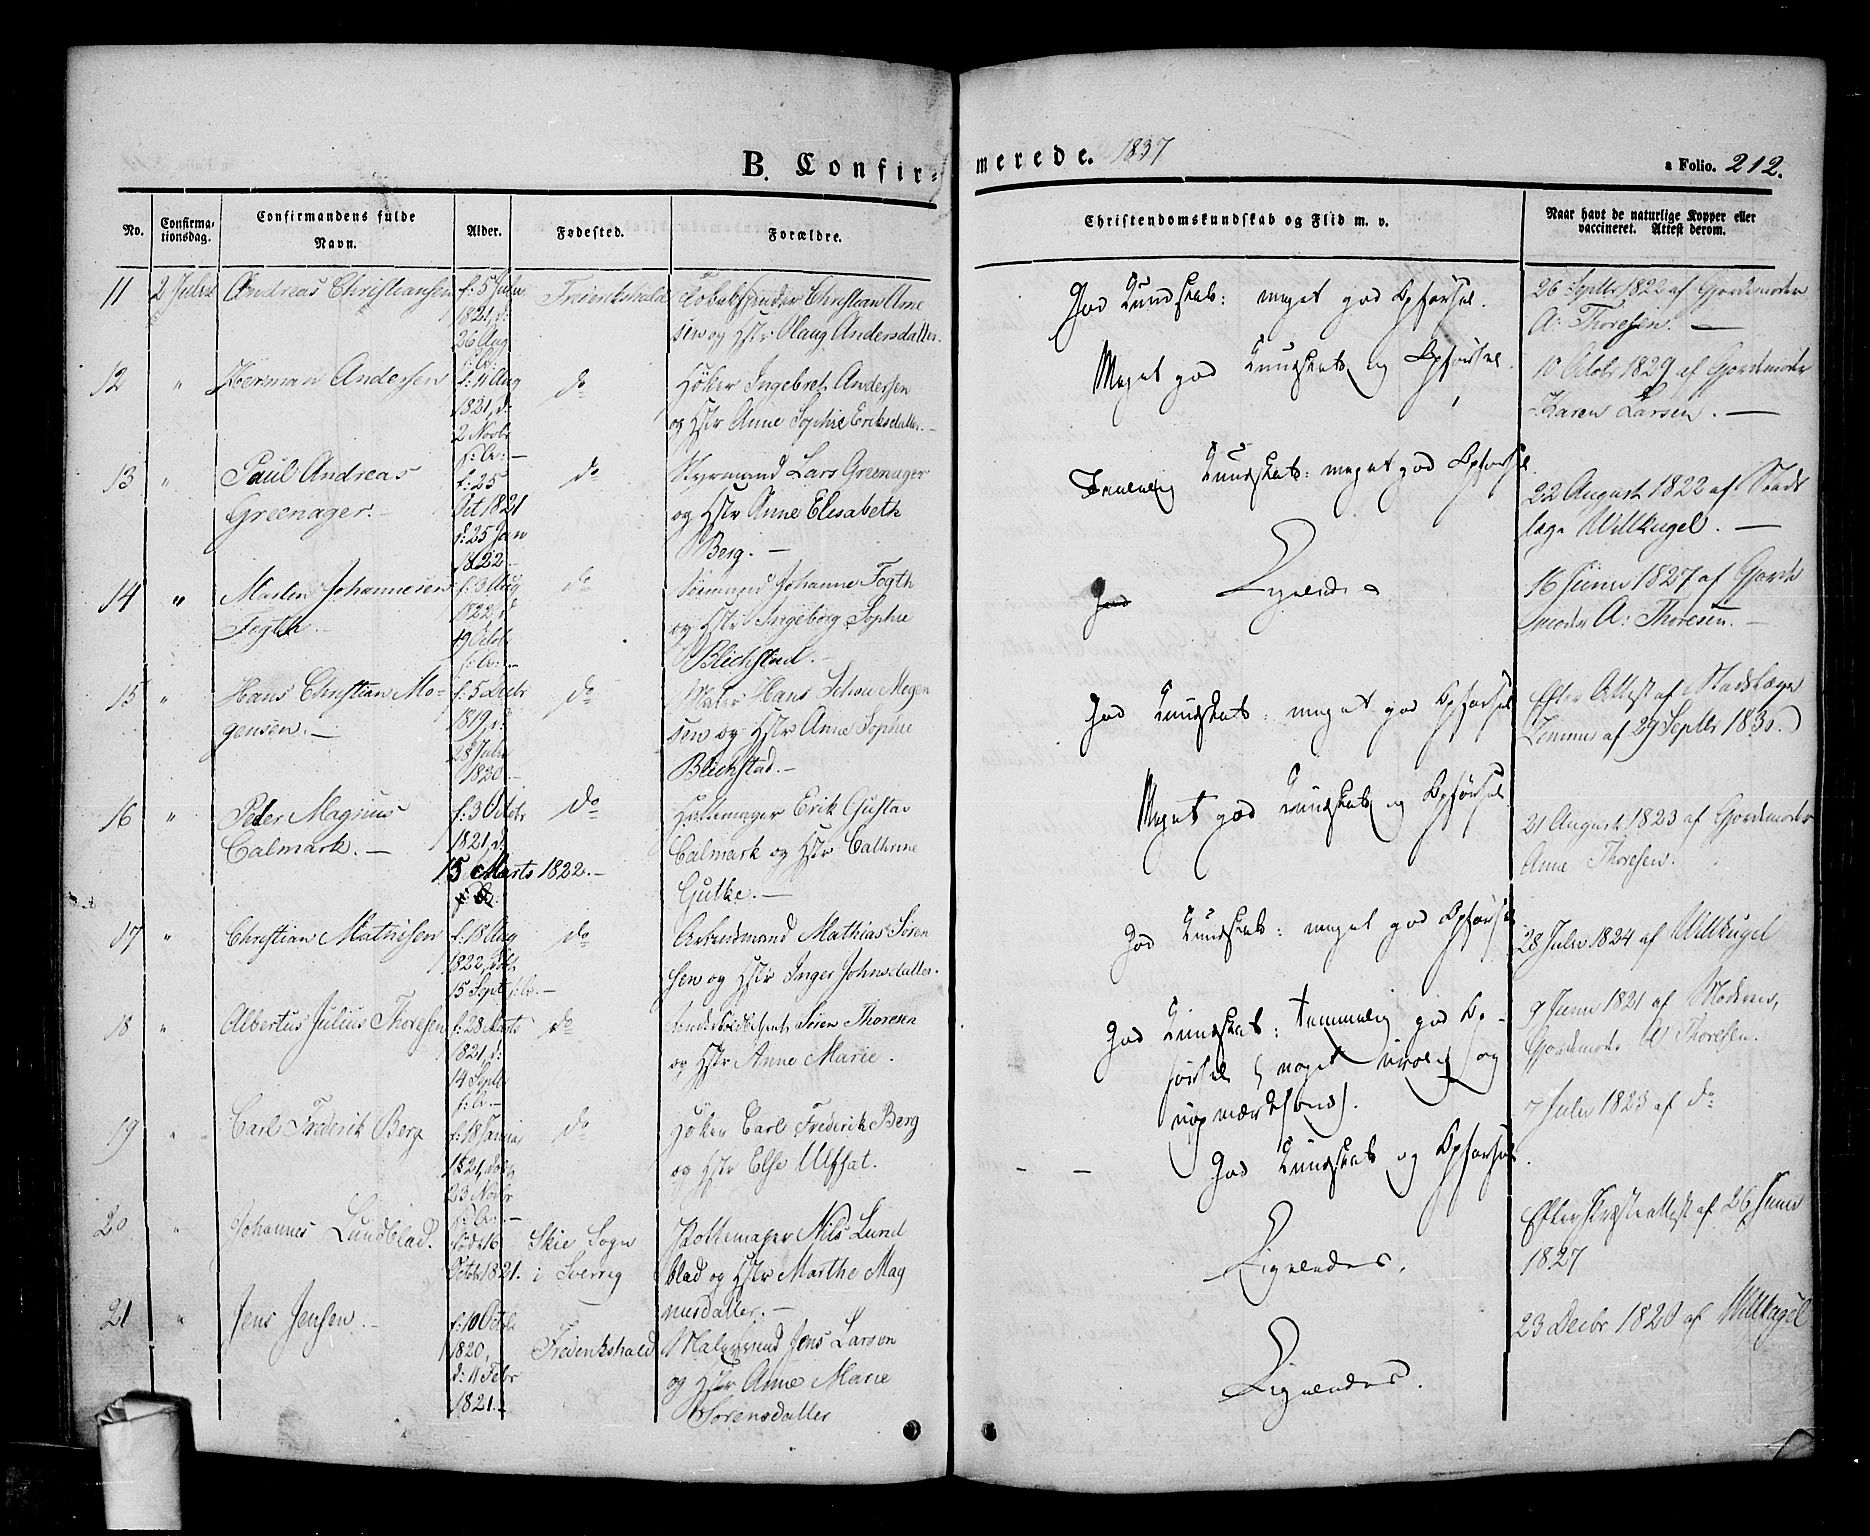 B. Confir-
merede. 1837
a Folio. 212.
No.
Confirma-
tionsdag.
Confirmandens fulde
Navn.
Alder.
Fødested.
Forældre.
Christendomskundskab og Flid m. v.
Naar havt de naturlige Kopper eller
vaccineret. Attest derom.
11 2 Julii Andreas Christiansen
f: 5 Julii
1821, d:
26 Aug
Frederikshald
Christian Arne
sen og Hstr Olaug Andersdatter.
God Kundskab: meget god Opførsel.
26 Septbr 1822 af Gjordemoder
A: Thoresen. —
12 " Herman Andersen
f: 11 Aug
1821, d:
2 Novbr
s: A: —
do
Høker Ingebret Andersen
og Hstr Anne Sophie Eriksdatter. —
Meget god Kundskab og Opførsel.
10 Octobr 1829 af Gjordemoder
Karen Larsen. —
13 " Paul Andreas
Greenager. —
f: 25
Oct 1821
d: 25 Jan
1822 —
do
Styrmand Lars Greenager
og Hstr Anne Elisabeth
Berg. —
Temmelig Kundskab: meget god Opførsel.
22 August 1822 af Stads
læge Willkugel. —
14 " Johannesen
Fogth. —
f: 3 Aug
1822, d
19 Octobr
do
Sømand Johanne Fogth
og Hstr Ingeborg Sophie
Blichstad. —
God
Ligeledes
16 Junii 1827 af Gjorde
moder A: Thoresen. —
15 " Hans Christian Mo-
gensen. —
f: 5 Decbr
1819, d:
28 Julii
1820. —
do
Maler Hans Mogen
sen og Hstr Anne Sophie
Blichstad. —
God Kundskab: meget god Opførsel
Efter Attest af Stadslæge
af 29 Septbr 1830.
16 " Peder Magnus
Calmark. —
f: 3 Octobr
1821, d:
15 Marts 1822. —
do
Hattemager Erik Gustav
Calmark og Hstr Cathrine
Gutke. —
Meget god Kundskab og Opførsel
21 August 1823 af Gjordemoder
Anne Thoresen.
17 " Christian Mathisen
f: 18 Aug
1822, dbt
15 Sept s: A: —
do
Arbeidsmand Mathias Søren
sen og Hstr Inger Johnsdatter.
God Kundskab: meget god Opførsel
28 Julii 1824 af Willkugel
18 " Albertus Julius Thoresen
f: 28 Marts
1821, d:
14 Septbr
s: A: —
do
Søren Thoresen
og Hstr Anne Marie.
God Kundskab: temmelig god Op-
førsel (noget urolig og
uopmærksom).
9 Junii 1821 af Moderen,
Gjordemoder Thoresen.
19 " Carl Frederik Berg
f: 18 Januar
1821, dobt
23 Novbr
s: A: —
do
Høker Carl Frederik Berg
og Hstr Else Ulfsat.
God Kundskab og Opførsel.
7 Julii 1823 af do
20 " Johannes Lundblad.
Født 16
Octobr 1821.
Skie Sogn
i Sverrig
Pottemager Nils Lund
blad og Hstr Marthe Mag
nusdatter. —
Ligeledes.
Efter Præsteattest af 26 Junii
1827
21 " Jens Jensen.
f: 10 Octbr
1820,
d: 11 Febr
1821. —
Frederikshald
Jens Larsen
og Hstr Anne Marie
Sørensdatter
Ligeledes.
23 Decbr 1820 af Willkugel